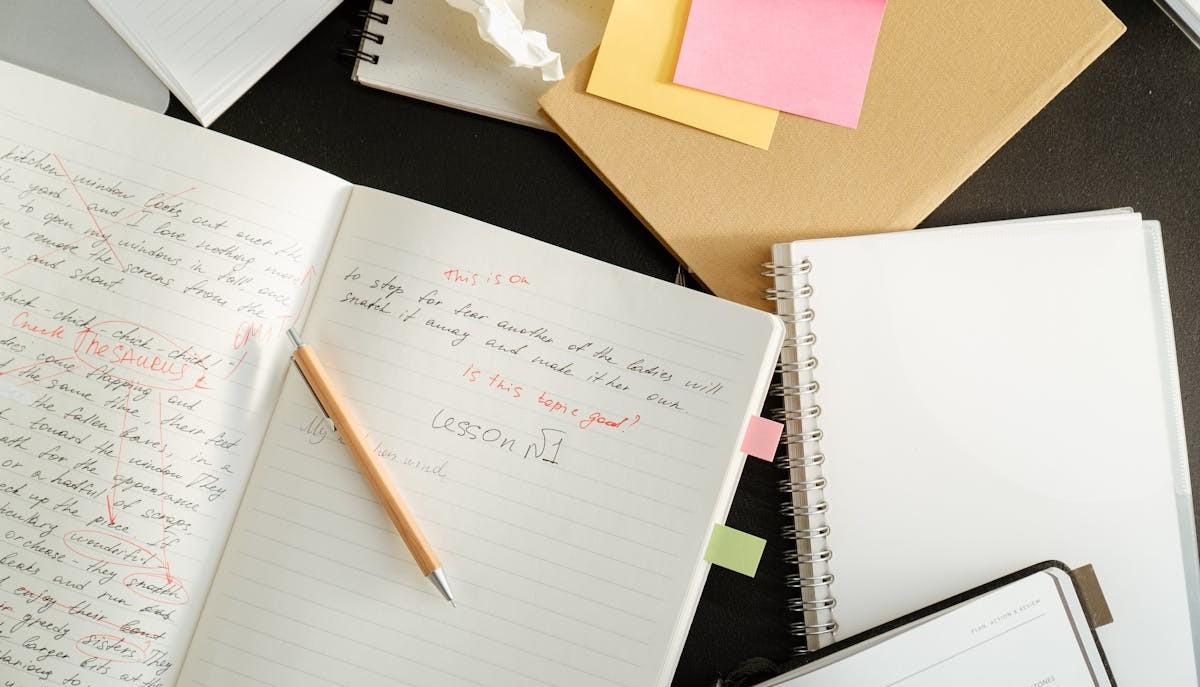 kitchen window looks out over the
yard and I love nothing more
to open my windows in fall once
remove the screens from the
and shout
OMIT
chick-chick-chick-chick!
Check THESAURUS
come flapping and
the same time, their feet
the fallen leaves, in a
toward the window They
for the appearance
or a handful of scraps,
up the piece. If
wonderful
or cheese - they snatch
beaks and run
enjoy their
greedy sisters They
larger bits at the
to
This is on
to stop for fear another of the ladies will
snatch it away and make it her own.
Is this topic good?
Lesson №1
My
wind
PLAN, ACTION & REVIEW